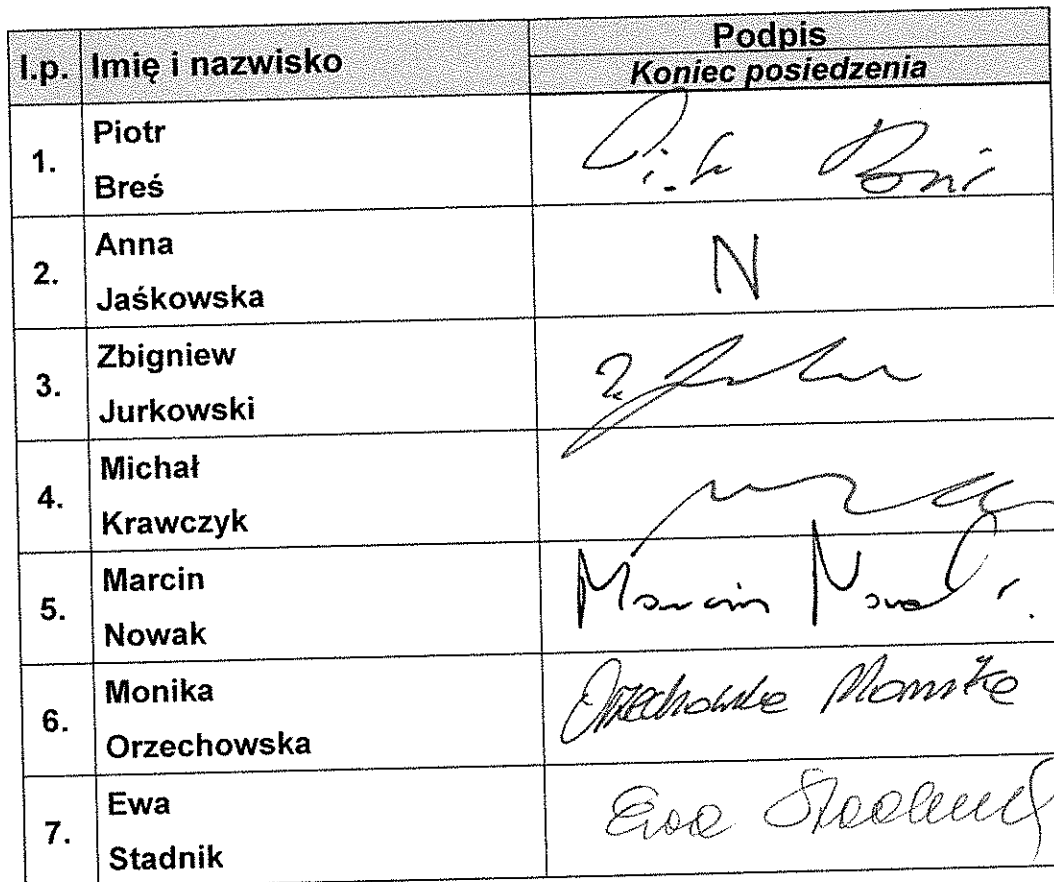 l.p. Imię i nazwisko Podpis
Koniec posiedzenia
1. Piotr
Breś
2. Anna
Jaśkowska
N
3. Zbigniew
Jurkowski
4. Michał
Krawczyk
5. Marcin
Nowak
Marcin Nowak
6. Monika
Orzechowska
Orzechowska Monika
7. Ewa
Stadnik
Ewa Stadnik